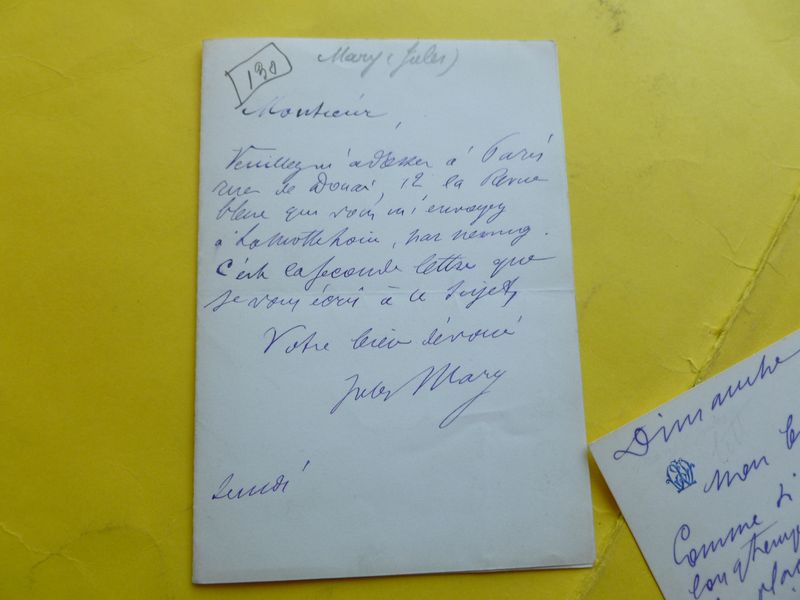 130
Mary (Jules)
Monsieur,
Veuillez m'adresser à Paris
rue de Douai, 12 la Revue
bleue que vous m'envoyez
à Lamotte, par
C'est la seconde lettre que
je vous écris à ce sujet,
Votre bien dévoué
Jules Mary
Lundi
Dimanche
Mon
Comme si
longtemps